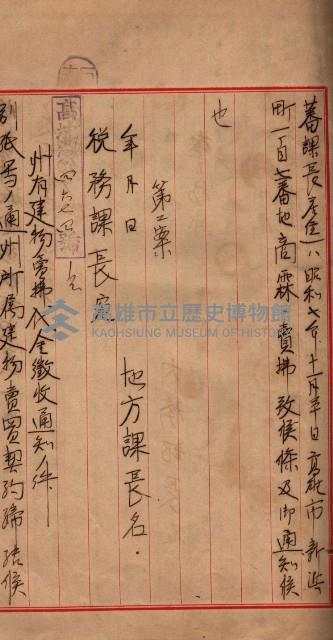 蕃課長官舍ハ昭和七年十一月三十日高雄市新浜
町一百七番地商霖賣拂致候條及御通知候
也
第二案
年月日
稅務課長宛
地方課長名.
州有建物賣拂代金徵收通知ノ件
別紙寫ノ通州所屬建物賣買契約締結候
高雄市立歷史博物館
KAOHSIUNG MUSEUM OF HISTORY